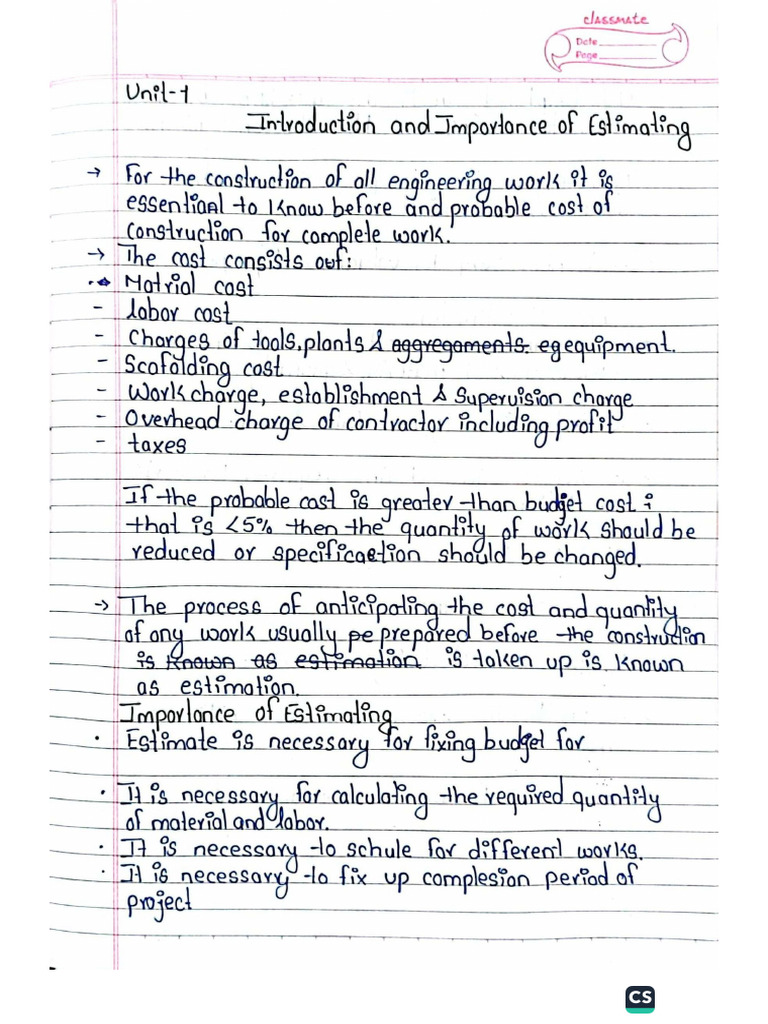 classmate
Date
Page
Unit-1
Introduction and Importance of Estimating
→ For the construction of all engineering work it is
essentianl to know before and probable cost of
construction for complete work.
→ The cost consists of:
Matrial cost
- labor cost
- Charges of tools, plants & aggregaments. egequipment.
- Scafolding cost
- Work charge, establishment & Supervision charge
- Overhead charge of contractor including profit
- taxes
If the probable cost is greater than budget cost i
that is <5% then the quantity of work should be
reduced or specification should be changed.
→ The process of anticipating the cost and quantity
of any work usually pe prepared before the construction
is known as estimation is taken up is known
as estimation.
Importance of Estimating
• Estimate is necessary for fixing budget for
• It is necessary for calculating the required quantity
of material and labor.
• It is necessary to schule for different works.
• It is necessary to fix up complesion period of
project
CS